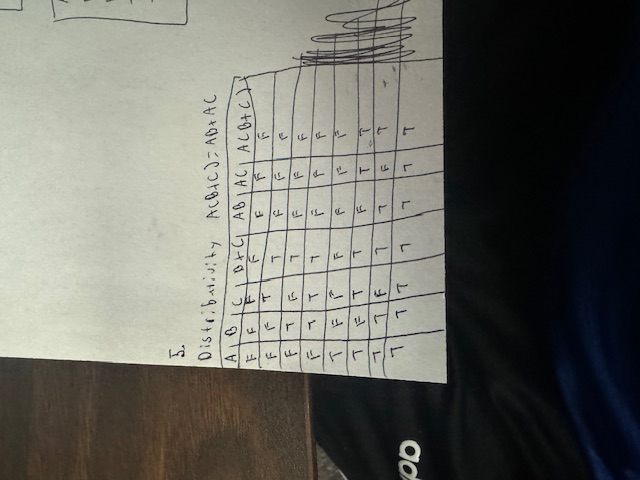 5.
Distributivity A(B+C)=AB+AC
A B C B+C AB AC A(B+C)
F F F F F F F
F F T T F F F
F T F T F F F
F T T T F F F
T F F F F F F
T F T T F T T
T T F T T F T
T T T T T T T